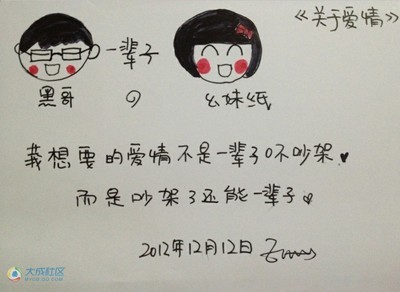 《关于爱情》
一辈子
黑哥 の 幺妹纸
我想要的爱情不是一辈子不吵架
而是吵架了还能一辈子
2012年12月12日
大成社区